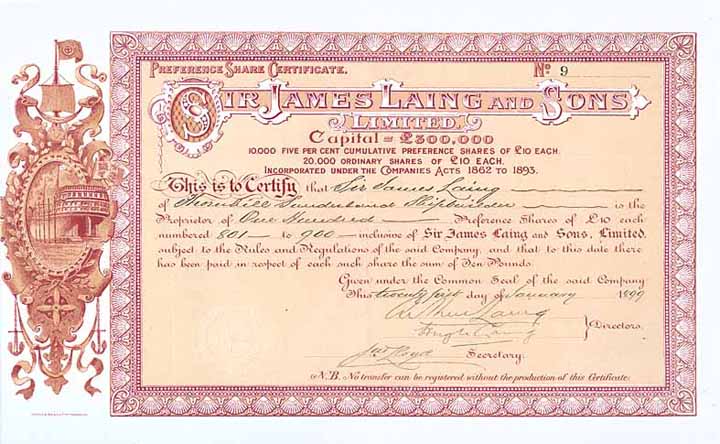 PREFERENCE SHARE CERTIFICATE. No 9
SIR JAMES LAING AND SONS
LIMITED.
Capital = £300,000
10,000 FIVE PER CENT CUMULATIVE PREFERENCE SHARES OF £10 EACH.
20,000 ORDINARY SHARES OF £10 EACH.
INCORPORATED UNDER THE COMPANIES ACTS 1862 TO 1893.
This is to Certify that Sir James Laing
of Thornhill Sunderland Shipbuilder is the
Proprietor of One Hundred Preference Shares of £10 each
numbered 801 to 900 inclusive of Sir James Laing and Sons, Limited,
subject to the Rules and Regulations of the said Company, and that to this date there
has been paid in respect of each such share the sum of Ten Pounds.
Given under the Common Seal of the said Company
This twenty first day of January 1899
Arthur Laing
Laing } Directors.
Secretary.
N.B. No transfer can be registered without the production of this Certificate.